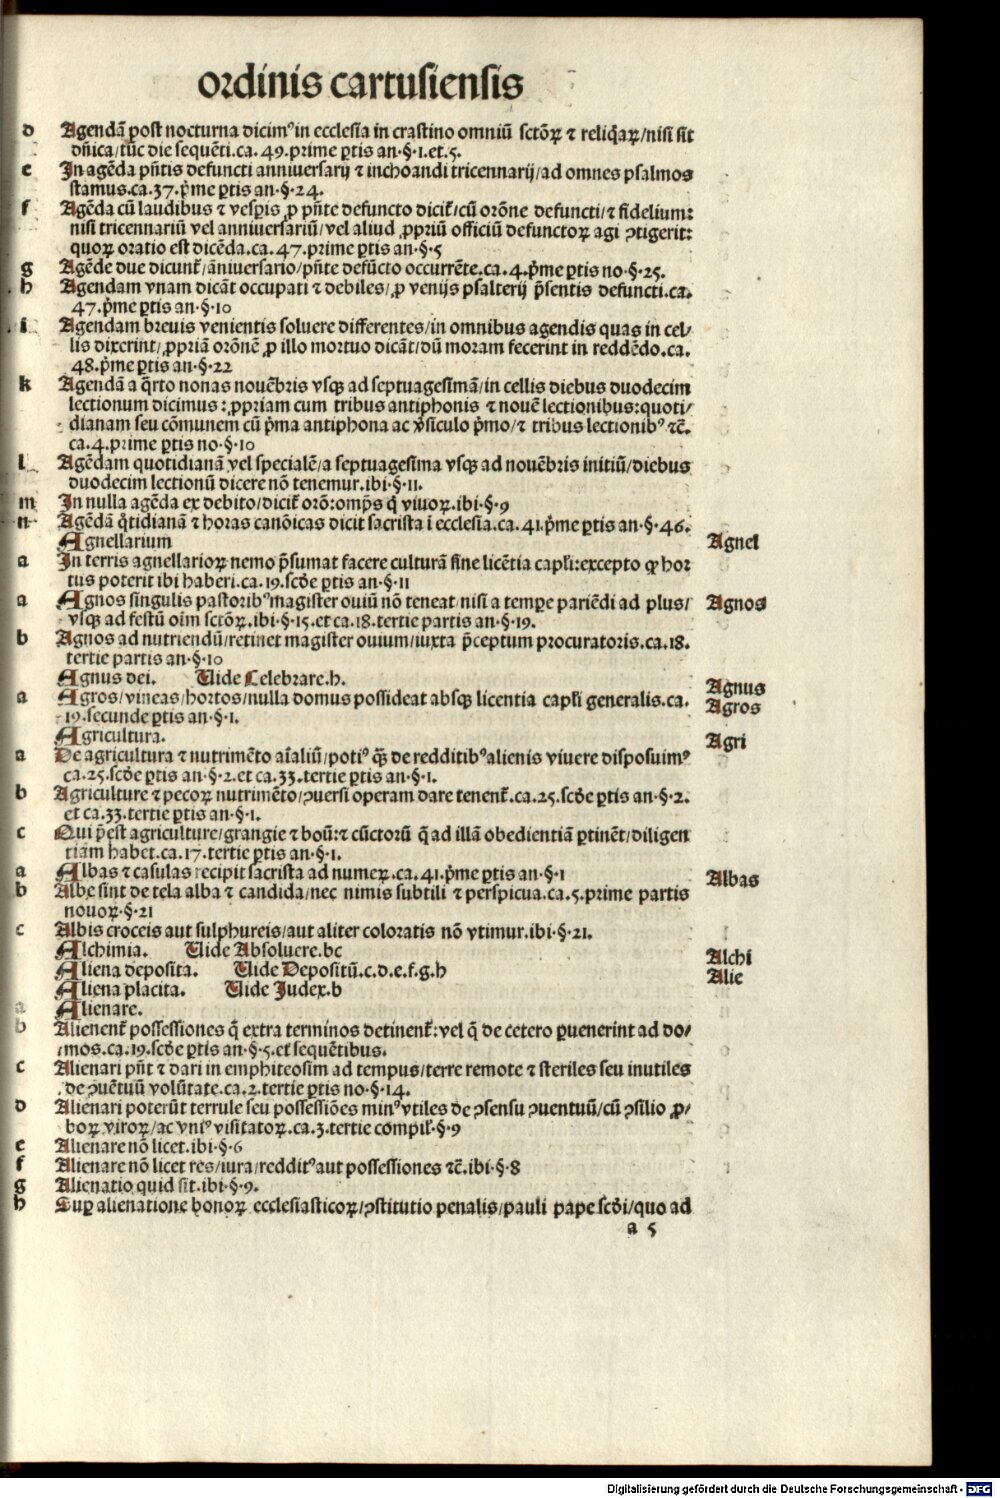 ordinis cartusiensis
d Agendā post nocturna dicimꝰ in ecclesia in crastino omniū sctōꝝ ⁊ reliq̄aꝝ/nisi sit
dn̄ica/tūc die sequēti.ca.49.prime ꝑtis an.§.1.et.5.
e In agēda pn̄tis defuncti anniversarij ⁊ inchoandi tricennarij/ad omnes psalmos
stamus.ca.37.p̄me ꝑtis an.§.24.
f Agēda cū laudibus ⁊ vesꝑis ꝓ pn̄te defuncto dicit̄/cū orōne defuncti/⁊ fidelium:
nisi tricennariū vel anniversariū/vel aliud ꝓpriū officiū defunctoꝝ agi ꝯtigerit:
quoꝝ oratio est dicēda.ca.47.prime ꝑtis an.§.5
g Agēde due dicunt̄/āniversario/pn̄te defūcto occurrēte.ca.4.p̄me ꝑtis no.§.25.
h Agendam vnam dicāt occupati ⁊ debiles/ꝓ venijs psalterij p̄sentis defuncti.ca.
47.p̄me ꝑtis an.§.10
i Agendam brevis venientis soluere differentes/in omnibus agendis quas in cel/
lis dixerint/ꝓpriā orōnē ꝓ illo mortuo dicāt/dū moram fecerint in reddēdo.ca.
48.p̄me ꝑtis an.§.22
k Agendā a q̄rto nonas nouēbris vsqꝫ ad septuagesimā/in cellis diebus duodecim
lectionum dicimus:ꝓpriam cum tribus antiphonis ⁊ nouē lectionibus:quoti/
dianam seu cōmunem cū p̄ma antiphona ac v̄siculo p̄mo/⁊ tribus lectionibꝰ ⁊c̄.
ca.4.prime ꝑtis no.§.10
l Agēdam quotidianā vel specialē/a septuagesima vsqꝫ ad nouēbris initiū/diebus
duodecim lectionū dicere nō tenemur.ibi.§.11.
m In nulla agēda ex debito/dicit̄ orō:omp̄s q̄ viuoꝝ.ibi.§.9
n Agēdā q̄tidianā ⁊ horas canōicas dicit sacrista ī ecclesia.ca.41.p̄me ꝑtis an.§.46.
Agnellarium Agnel
a In terris agnellarioꝝ nemo p̄sumat facere culturā sine licētia capl̄i:excepto ꝙ hor
tus poterit ibi haberi.ca.19.scd̄e ꝑtis an.§.11
a Agnos singulis pastoribꝰ magister ouiū nō teneat/nisi a temꝑe pariēdi ad plus/ Agnos
vsqꝫ ad festū oīm sctōꝝ.ibi.§.15.et ca.18.tertie partis an.§.19.
b Agnos ad nutriendū/retinet magister ouium/iuxta p̄ceptum procuratoris.ca.18.
tertie partis an.§.10
Agnus dei. Vide Celebrare.h. Agnus
a Agros/vineas/hortos/nulla domus possideat absqꝫ licentia capl̄i generalis.ca. Agros
19.secunde ꝑtis an.§.1.
Agricultura. Agri
a De agricultura ⁊ nutrimēto aīaliū/potiꝰ q̄ꝫ de redditibꝰ alienis viuere disposuimꝰ
ca.25.scd̄e ꝑtis an.§.2.et ca.33.tertie ꝑtis an.§.1.
b Agriculture ⁊ pecoꝝ nutrimēto/ꝯuersi operam dare tenent̄.ca.25.scd̄e ꝑtis an.§.2.
et ca.33.tertie ꝑtis an.§.1.
c Qui p̄est agriculture/grangie ⁊ boū:⁊ cūctorū q̄ ad illā obedientiā ꝑtinēt/diligen
tiam habet.ca.17.tertie ꝑtis an.§.1.
a Albas ⁊ casulas recipit sacrista ad numeꝝ.ca.41.p̄me ꝑtis an.§.1 Albas
b Albe sint de tela alba ⁊ candida/nec nimis subtili ⁊ perspicua.ca.5.prime partis
nouoꝝ.§.21
c Albis croceis aut sulphureis/aut aliter coloratis nō vtimur.ibi.§.21.
Alchimia. Vide Absoluere.bc Alchi
Aliena deposita. Vide Depositū.c.d.e.f.g.h Alie
Aliena placita. Vide Judex.b
a Alienare.
b Alienent̄ possessiones q̄ extra terminos detinent̄:vel q̄ de cetero ꝑuenerint ad do/
mos.ca.19.scd̄e ꝑtis an.§.5.et sequētibus.
c Alienari pn̄t ⁊ dari in emphiteosim ad tempus/terre remote ⁊ steriles seu inutiles
de ꝯuētuū volūtate.ca.2.tertie ꝑtis no.§.14.
d Alienari poterūt terrule seu possessiōes minꝰ vtiles de ꝯsensu ꝯuentuū/cū ꝯsilio ꝓ/
boꝝ viroꝝ/ac vniꝰ visitatoꝝ.ca.3.tertie compil̄.§.9
e Alienare nō licet.ibi.§.6
f Alienare nō licet res/iura/redditꝰ aut possessiones ⁊c̄.ibi.§.8
g Alienatio quid sit.ibi.§.9.
h Suꝑ alienatione bonoꝝ ecclesiasticoꝝ/ꝯstitutio penalis/pauli pape scd̄i/quo ad
a 5
Digitalisierung gefördert durch die Deutsche Forschungsgemeinschaft - DFG